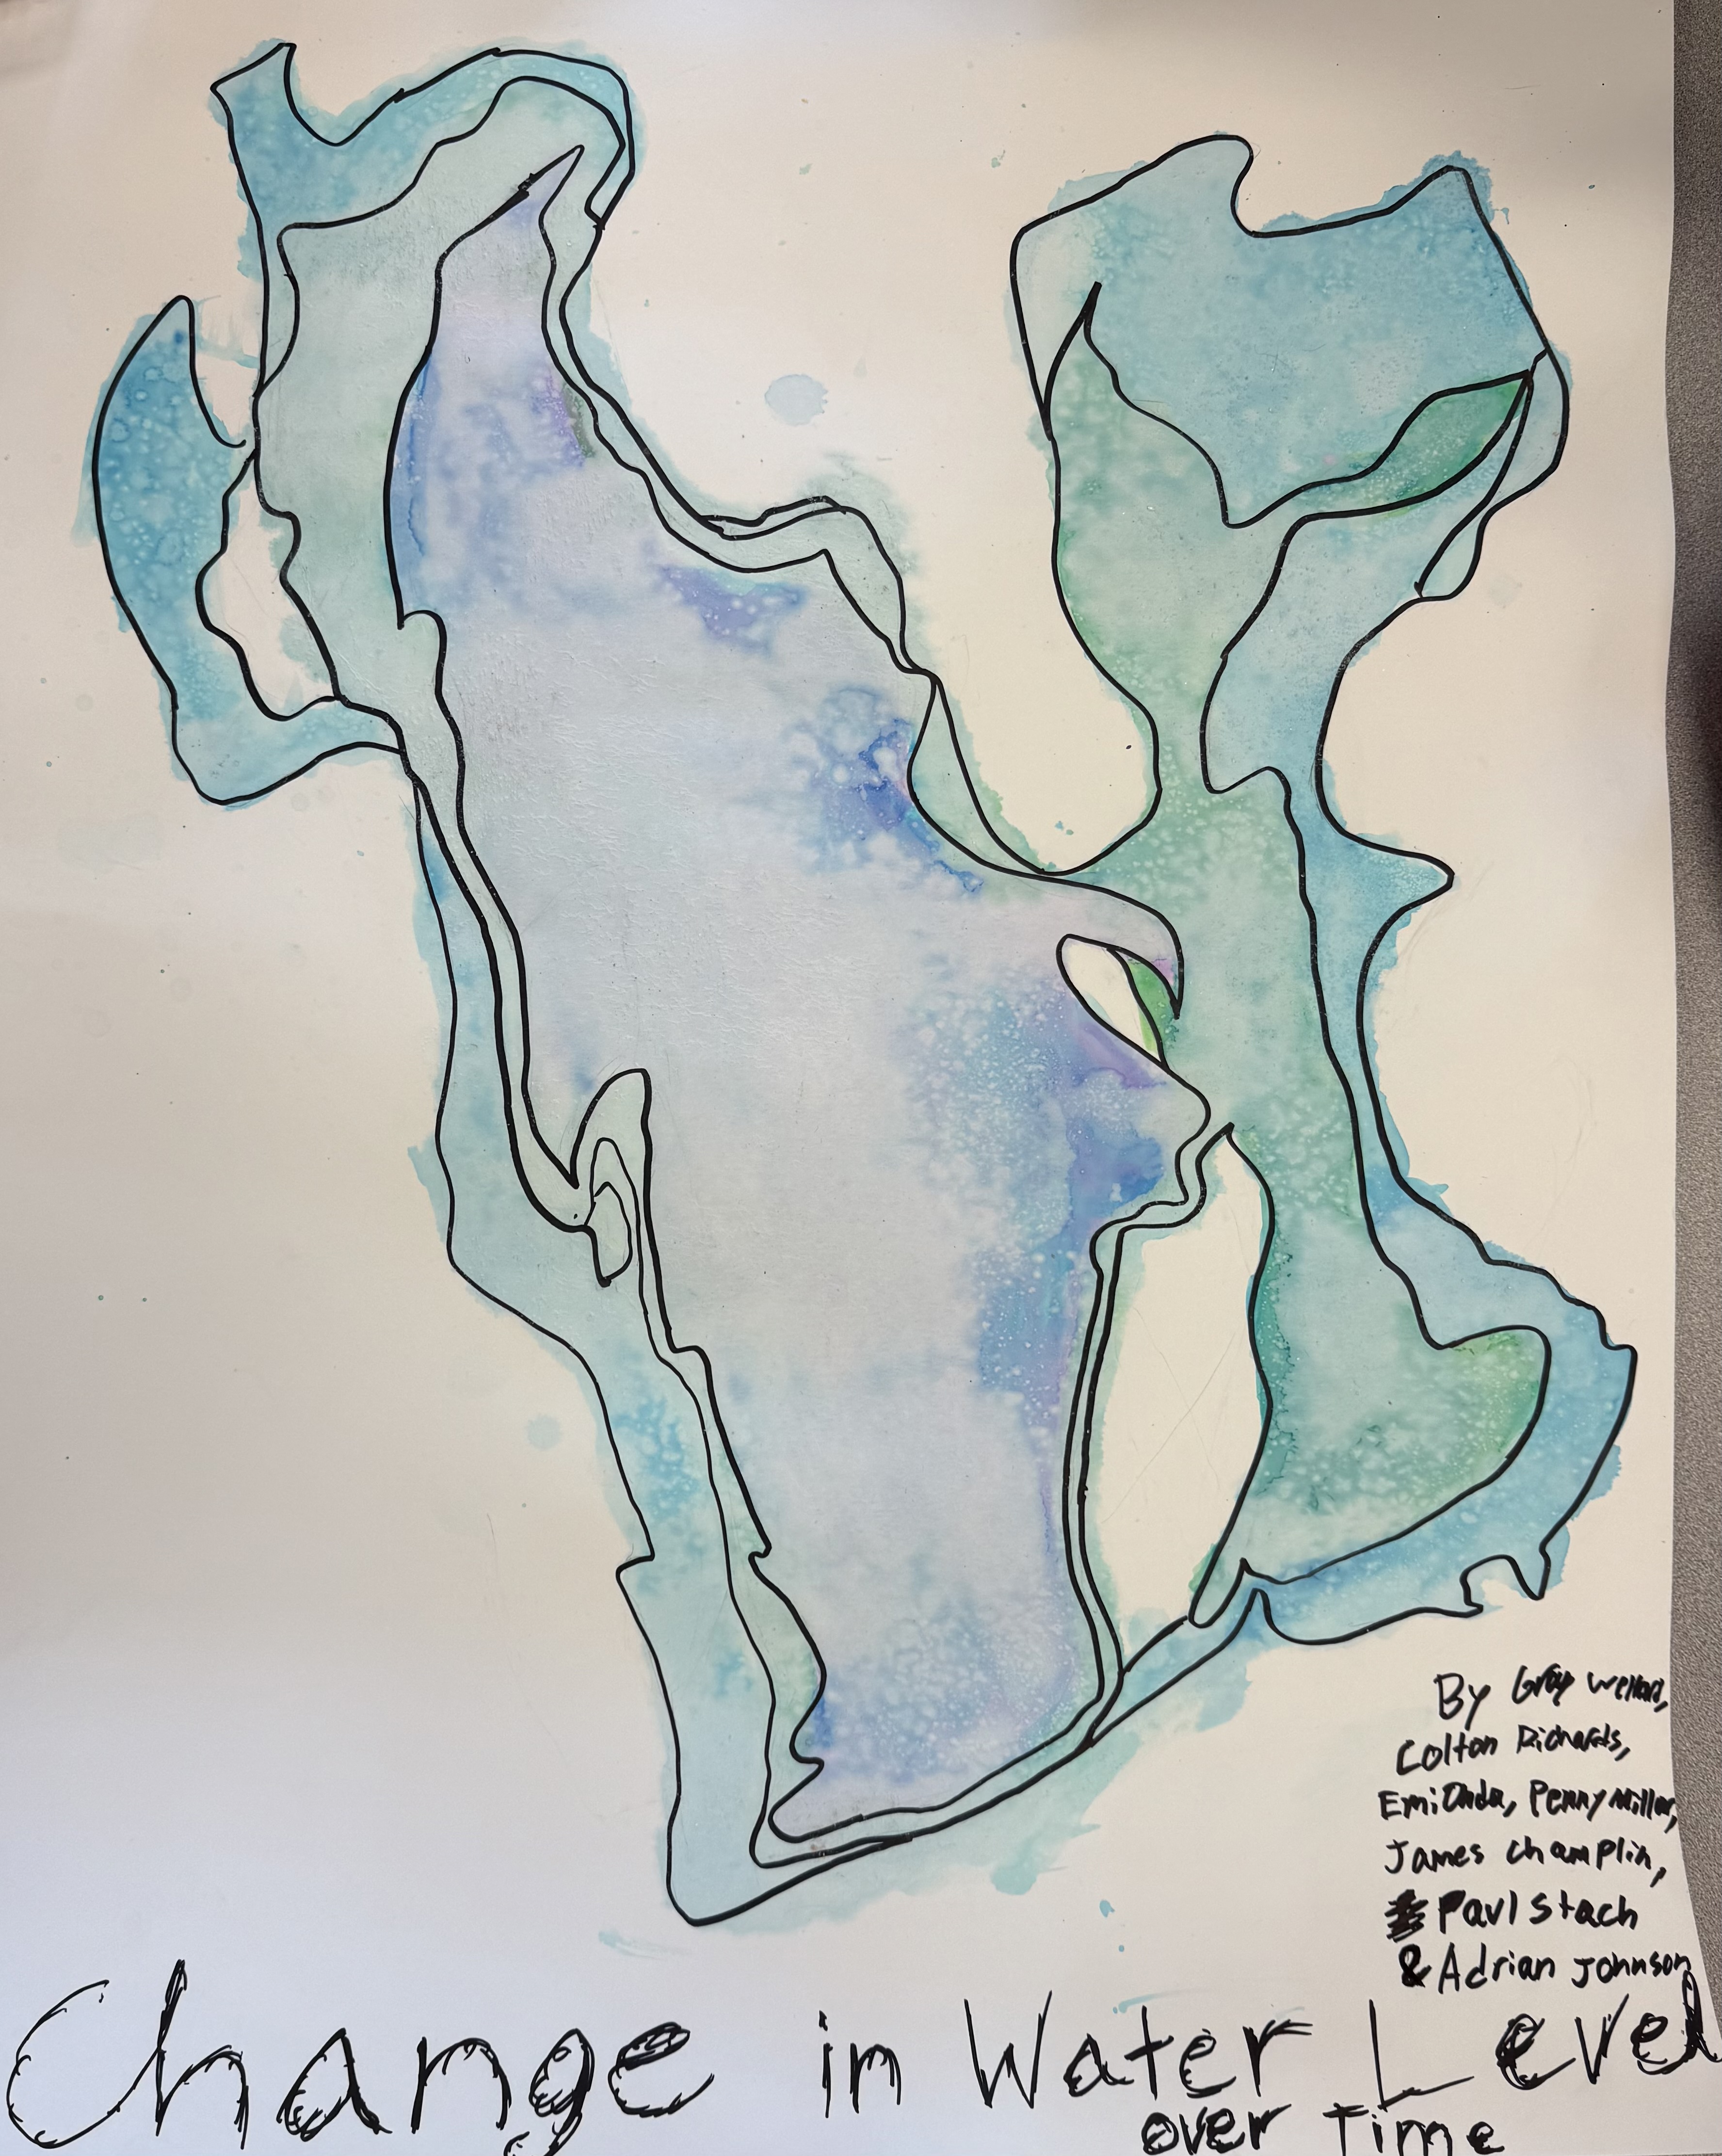 By Gray
Colton Richards,
Emi Onda, Penny Miller,
James Champlin,
Paul Stach
& Adrian Johnson
Change in Water Level
over Time